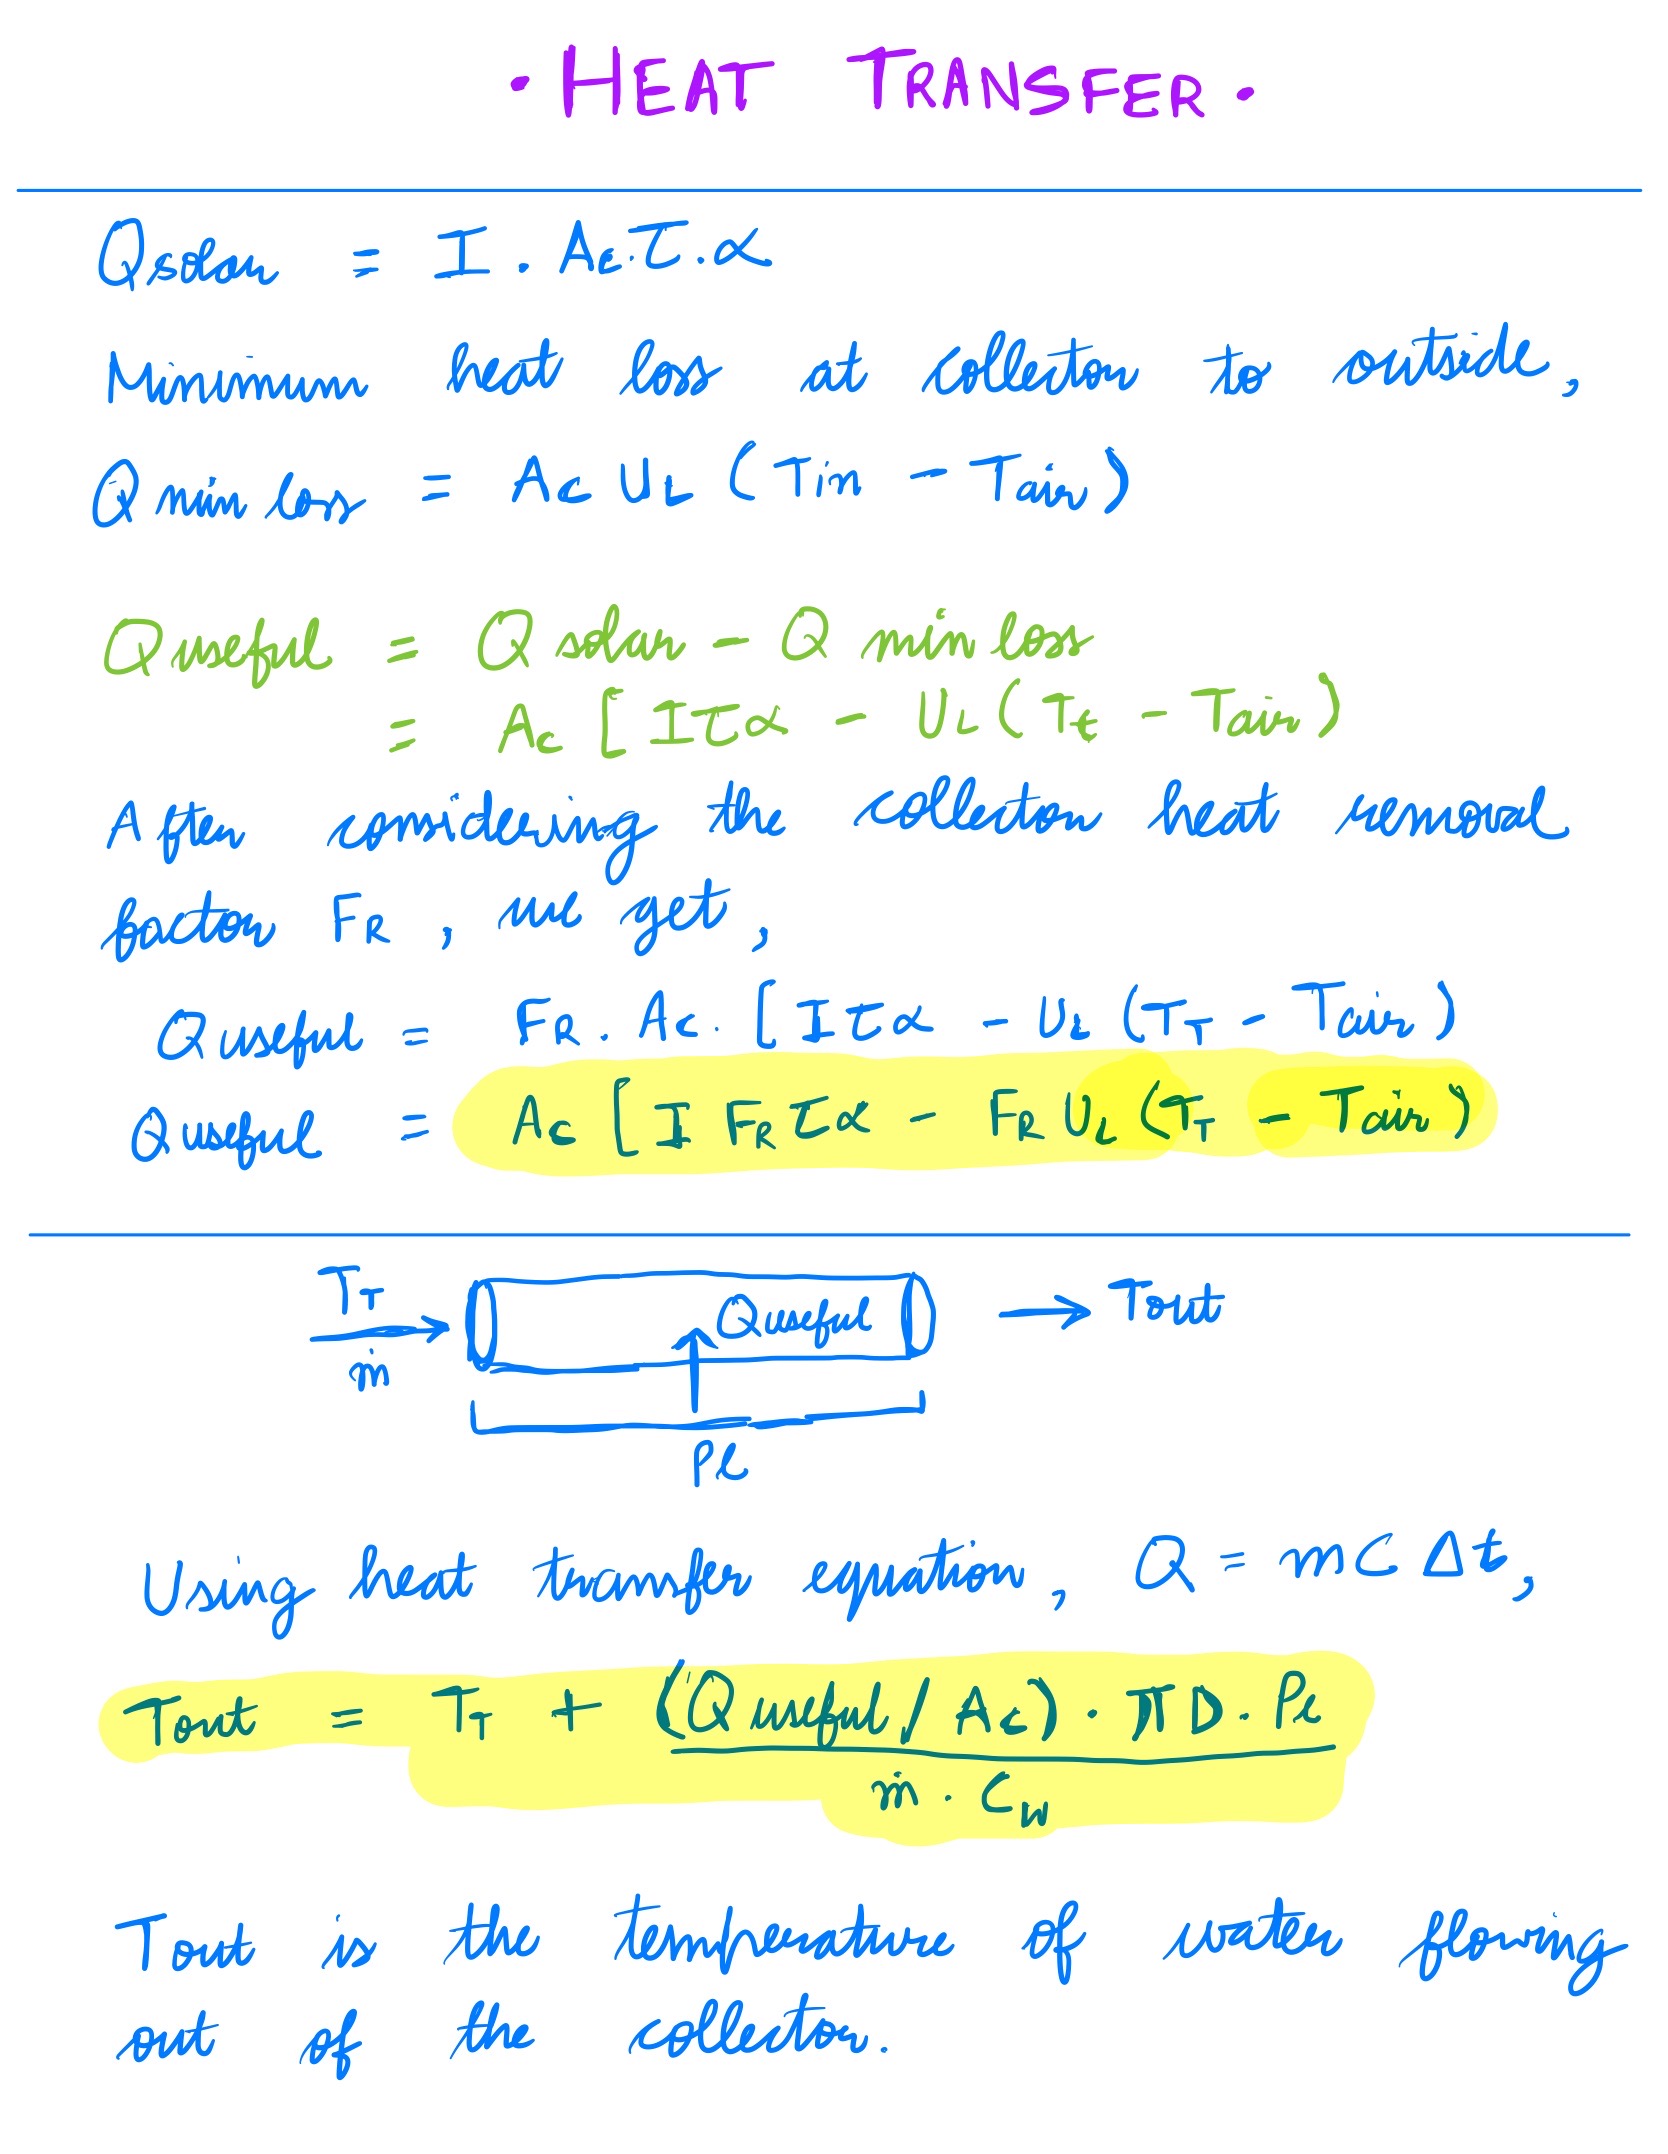 · HEAT TRANSFER ·
Qsolar = I . Ac. τ. α
Minimum heat loss at collector to outside,
Q min loss = Ac UL (Tin - Tair)
Q useful = Q solar - Q min loss
= Ac [Iτα - UL (Tt - Tair)
After considering the collector heat removal
factor FR, we get,
Q useful = FR. Ac. [Iτα - UL (TT - Tair)
Q useful = Ac [I FR τα - FR UL (TT - Tair)
TT
ṁ
Quseful
→ Tout
Pl
Using heat transfer equation, Q = mC Δt,
Tout = TT + (Q useful / Ac) . πD. Pl
ṁ . Cw
Tout is the temperature of water flowing
out of the collector.